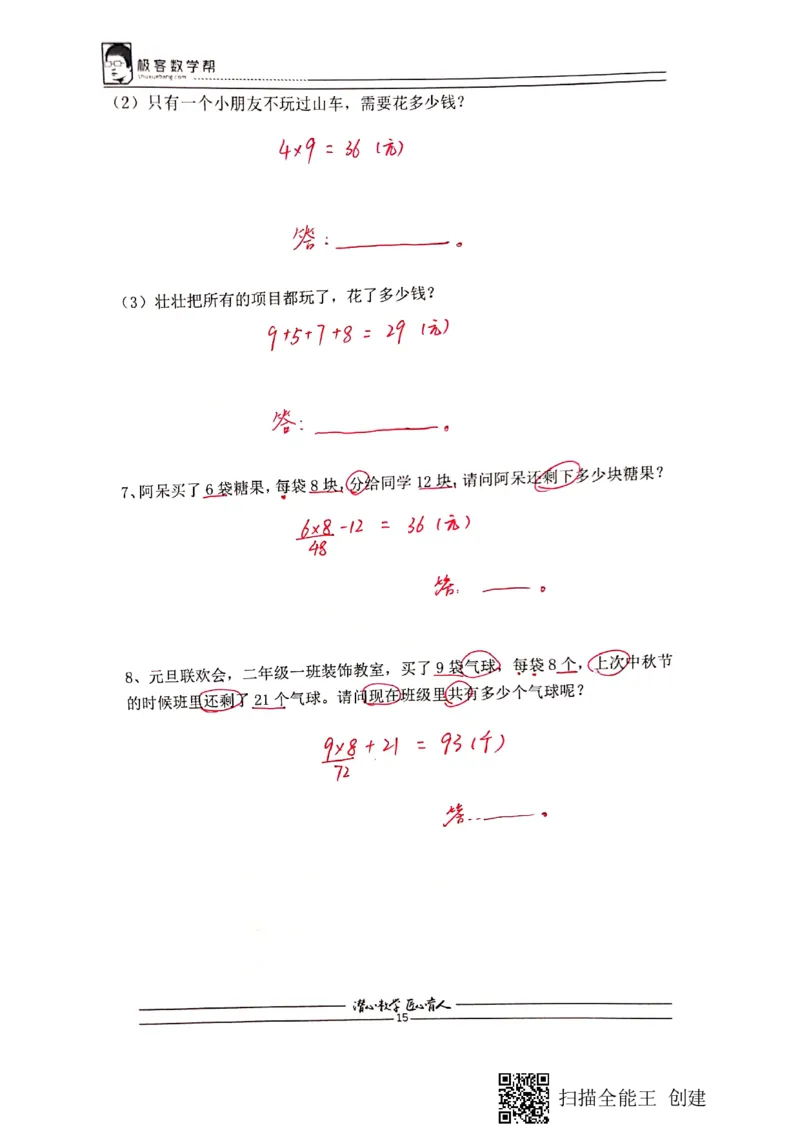 极客数学帮
shuxuebang.com
（2）只有一个小朋友不玩过山车，需要花多少钱？
4×9 = 36（元）
答：________。
（3）壮壮把所有的项目都玩了，花了多少钱？
9+5+7+8 = 29（元）
答：________。
7、阿呆买了 6 袋糖果，每袋 8 块，分给同学 12 块，请问阿呆还剩下多少块糖果？
6×8-12 = 36（元）
48
答：____。
8、元旦联欢会，二年级一班装饰教室，买了 9 袋气球，每袋 8 个，上次中秋节
的时候班里还剩了 21 个气球。请问现在班级里共有多少个气球呢？
9×8+21 = 93（个）
72
答：____。
潜心教学 匠心育人
15
扫描全能王 创建